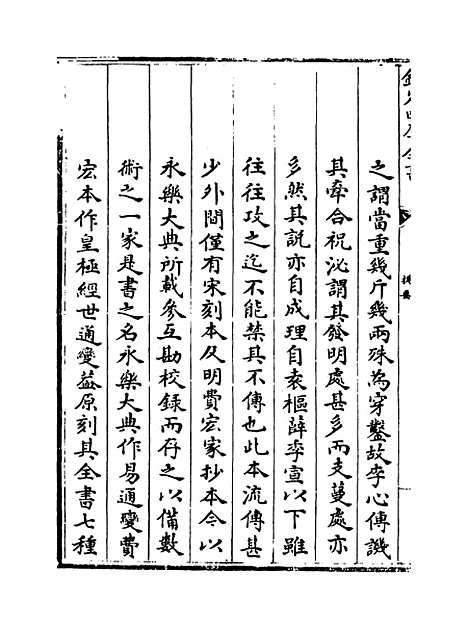 欽定四庫全書
提要
之謂當重幾斤幾兩殊為穿鑿故李心傳譏
其牽合祝泌謂其發明處甚多而支蔓處亦
多然其説亦自成理自袁樞薛季宣以下雖
往往攻之迄不能禁其不傳也此本流傳甚
少外間僅有宋刻本及明費宏家抄本今以
永樂大典所載參互勘校録而存之以備數
術之一家是書之名永樂大典作易通變費
宏本作皇極經世通變葢原刻其全書七種